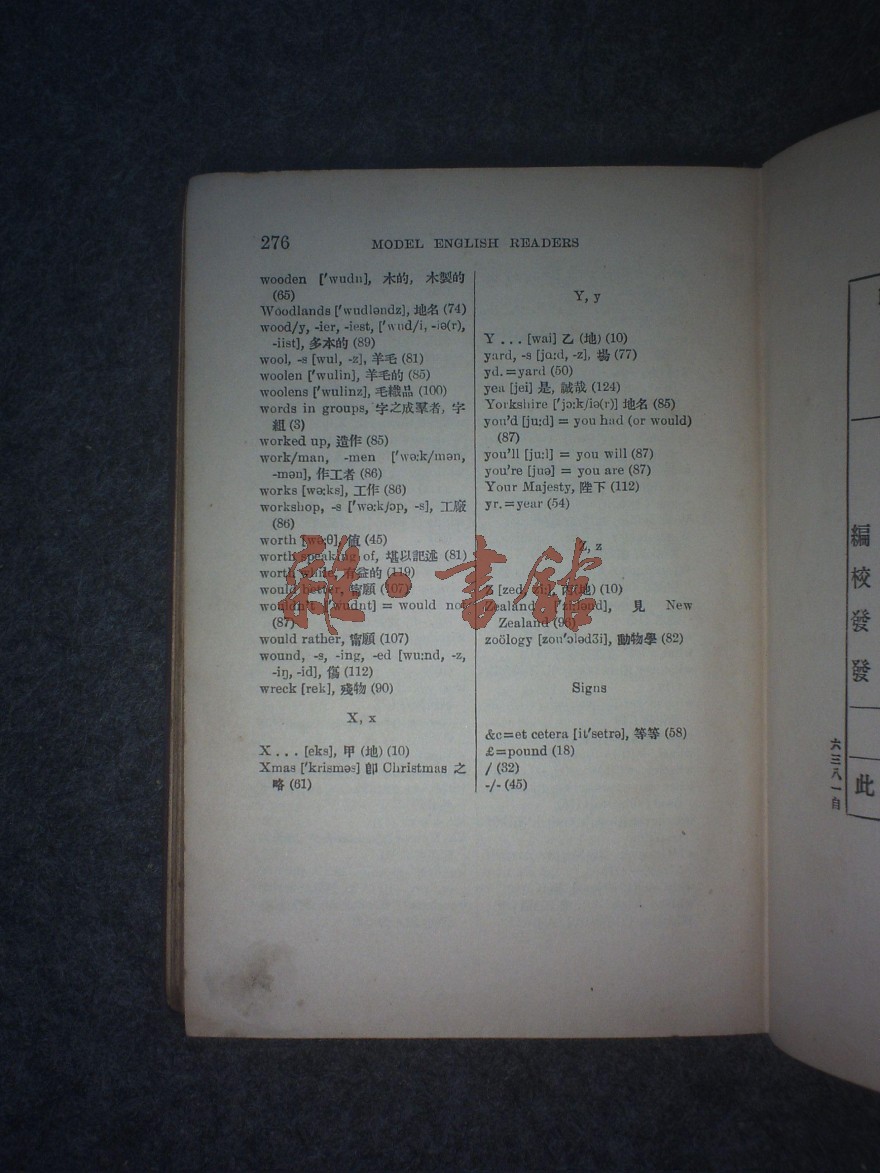 276 MODEL ENGLISH READERS
wooden ['wudn], 木的, 木製的
(65)
Woodlands ['wudləndz], 地名 (74)
wood/y, -ier, -iest, ['wud/i, -iə(r),
-iist], 多木的 (89)
wool, -s [wul, -z], 羊毛 (81)
woolen ['wulin], 羊毛的 (85)
woolens ['wulinz], 毛織品 (100)
words in groups, 字之成羣者, 字
組 (3)
worked up, 造作 (85)
work/man, -men ['wə:k/mən,
-mən], 作工者 (86)
works [wə:ks], 工作 (86)
workshop, -s ['wə:k/ɔp, -s], 工廠
(86)
worth [wə:θ], 值 (45)
worth speaking of, 堪以記述 (81)
worth while, 有益的 (119)
would better, 甯願 (107)
wouldn't ['wudnt] = would not
(87)
would rather, 甯願 (107)
wound, -s, -ing, -ed [wu:nd, -z,
-iŋ, -id], 傷 (112)
wreck [rek], 殘物 (90)
X, x
X . . . [eks], 甲 (地) (10)
Xmas ['krisməs] 卽 Christmas 之
略 (61)
Y, y
Y . . . [wai] 乙 (地) (10)
yard, -s [jɑ:d, -z], 場 (77)
yd. = yard (50)
yea [jei] 是, 誠哉 (124)
Yorkshire ['jɔ:k/iə(r)] 地名 (85)
you'd [ju:d] = you had (or would)
(87)
you'll [ju:l] = you will (87)
you're [juə] = you are (87)
Your Majesty, 陛下 (112)
yr. = year (54)
Z, z
Z [zed, zi:], 丙(地) (10)
Zealand ['zi:lənd], 見 New
Zealand (96)
zoölogy [zou'ɔlədʒi], 動物學 (82)
Signs
&c = et cetera [it'setrə], 等等 (58)
£ = pound (18)
/ (32)
-/- (45)
雜·書館
編校發發
此
六三八一自